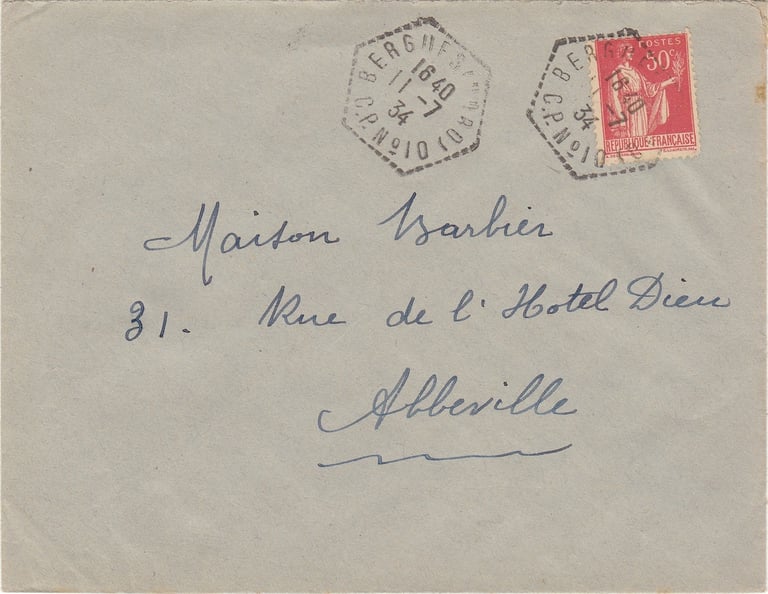 BERGUES (NORD)
1640
11-7
34
C.P.No10
BERGUES
1640
11-7
34
C.P.No10
POSTES
50c
REPUBLIQUE FRANÇAISE
Maison Barbier
31. Rue de l'Hotel Dieu
Abbeville